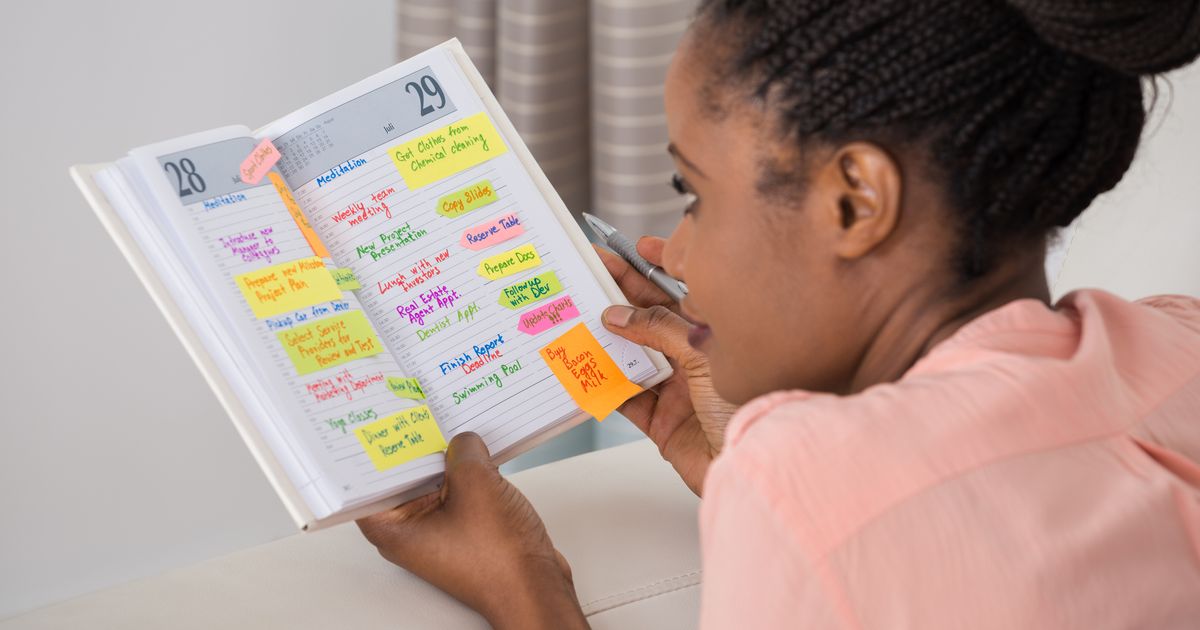 28
Meditation
Introduce new
Manager to
Colleagues
Prepare new Milestone
Project Plan
Pickup Car from Dealer
Select Service
Providers for
Review and Test
Meeting with
Marketing Department
Yoga Classes
Dinner with Clients
Reserve Table
29
Juli
Meditation
Got Clothes from
Chemical cleaning
Weekly team
meeting
Copy Slides
New Project
Presentation
Reserve Table
Lunch with new
investors
Prepare Docs
Real Estate
Agent Appt.
Followup
with Dev
Dentist Appt.
Update Charts
Finish Report
Deadline
Swimming Pool
Buy
Bacon
Eggs
Milk